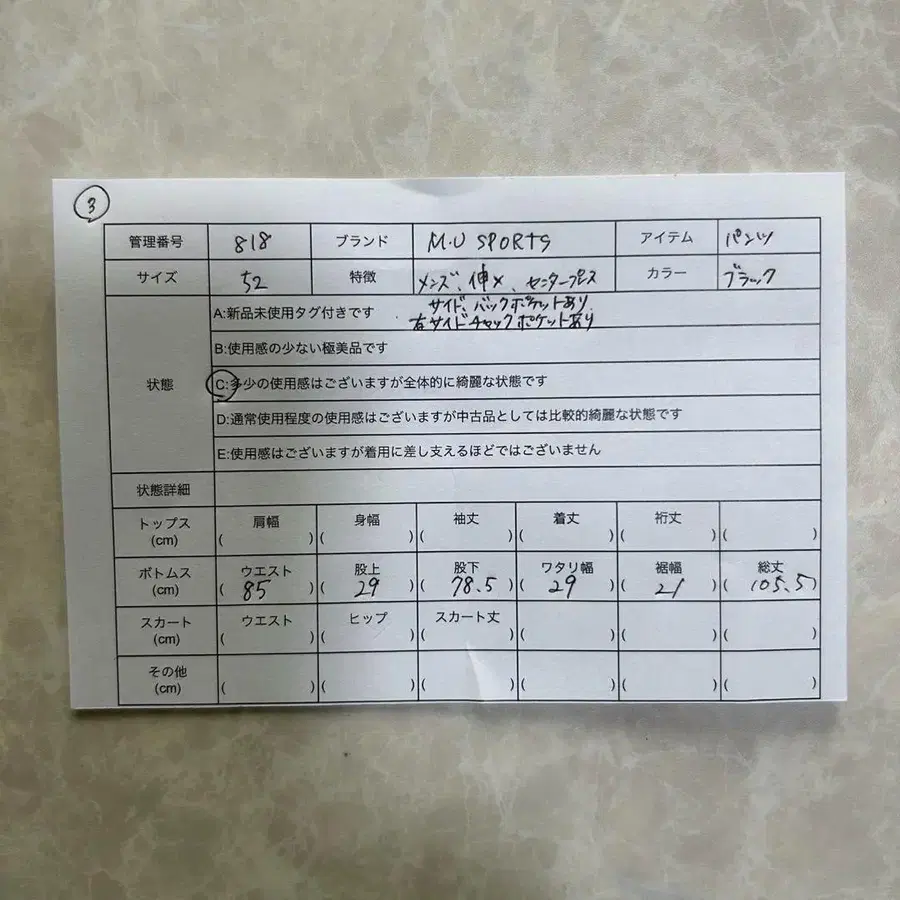 3
管理番号 818 ブランド M.U SPORTS アイテム パンツ
サイズ 52 特徴 メンズ、伸×、センタープレス カラー ブラック
サイド、バックポケットあり
右サイドチャックポケットあり
状態
A:新品未使用タグ付きです
B:使用感の少ない極美品です
C:多少の使用感はございますが全体的に綺麗な状態です
D:通常使用程度の使用感はございますが中古品としては比較的綺麗な状態です
E:使用感はございますが着用に差し支えるほどではございません
状態詳細
トップス (cm) 肩幅 ( ) 身幅 ( ) 袖丈 ( ) 着丈 ( ) 裄丈 ( ) ( )
ボトムス (cm) ウエスト ( 85 ) 股上 ( 29 ) 股下 ( 78.5 ) ワタリ幅 ( 29 ) 裾幅 ( 21 ) 総丈 ( 105.5 )
スカート (cm) ウエスト ( ) ヒップ ( ) スカート丈 ( ) ( ) ( ) ( )
その他 (cm) ( ) ( ) ( ) ( ) ( ) ( )